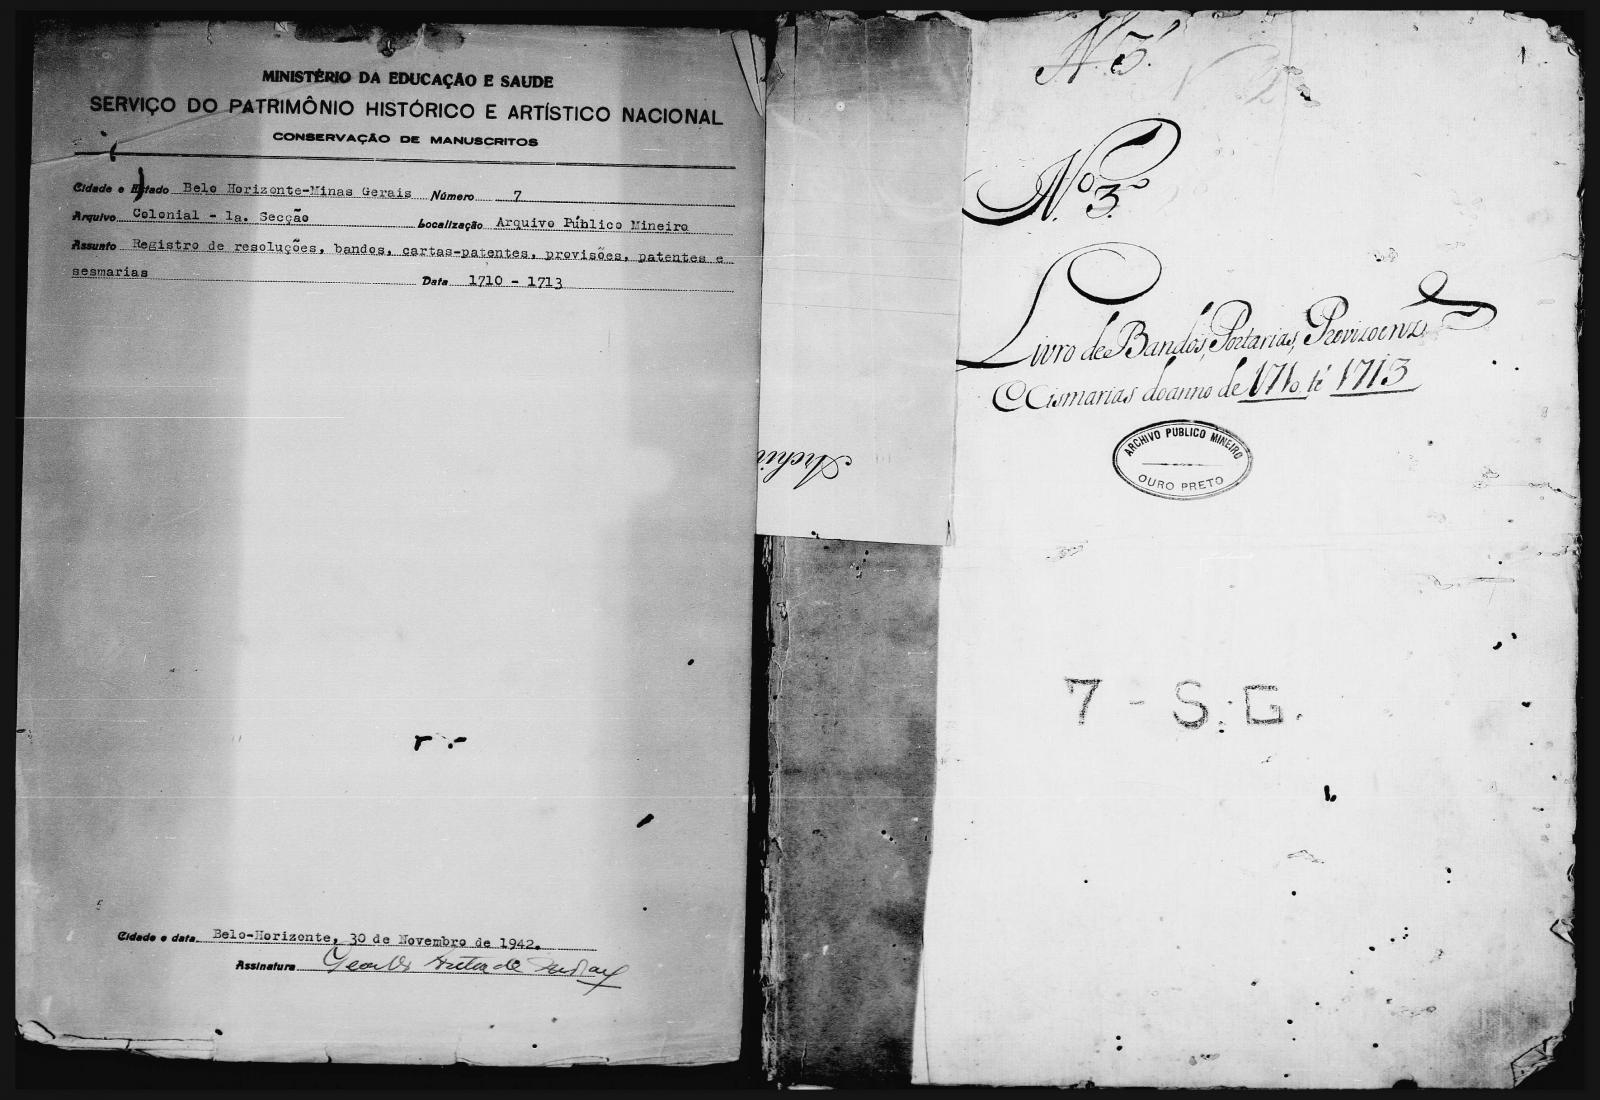 MINISTÉRIO DA EDUCAÇÃO E SAUDE
SERVIÇO DO PATRIMÔNIO HISTÓRICO E ARTÍSTICO NACIONAL
CONSERVAÇÃO DE MANUSCRITOS
Cidade e Estado Belo Horizonte-Minas Gerais Número 7
Arquivo Colonial - 1a. Secção Localização Arquivo Público Mineiro
Assunto Registro de resoluções, bandos, cartas-patentes, provisões, patentes e
sesmarias Data 1710 - 1713
Cidade e data Belo-Horizonte, 30 de Novembro de 1942.
Assinatura
Archi
N. 3.
1
N.º 3.º
Livro de Bandos, Portarias, Provizoenz
E Cismarias do anno de 1710 té 1713
ARCHIVO PUBLICO MINEIRO
OURO PRETO
7 - S. G.